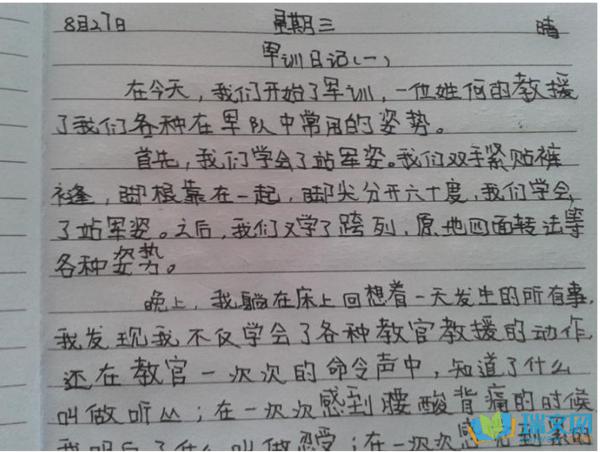 8月27日 星期三 晴
军训日记(一)
在今天,我们开始了军训,一位姓何的教援
了我们各种在军队中常用的姿势。
首先,我们学会了站军姿。我们双手紧贴裤
缝,脚根靠在一起,脚尖分开六十度,我们学会
了站军姿。之后,我们又学了跨列,原地四面转法等
各种姿势。
晚上,我躺在床上回想着一天发生的所有事,
我发现我不仅学会了各种教官教援的动作,
还在教官一次次的命令声中,知道了什么
叫做听丛;在一次次感到腰酸背痛的时候
我明白了什么叫做忍受;在一次次感到累的
瑞文网